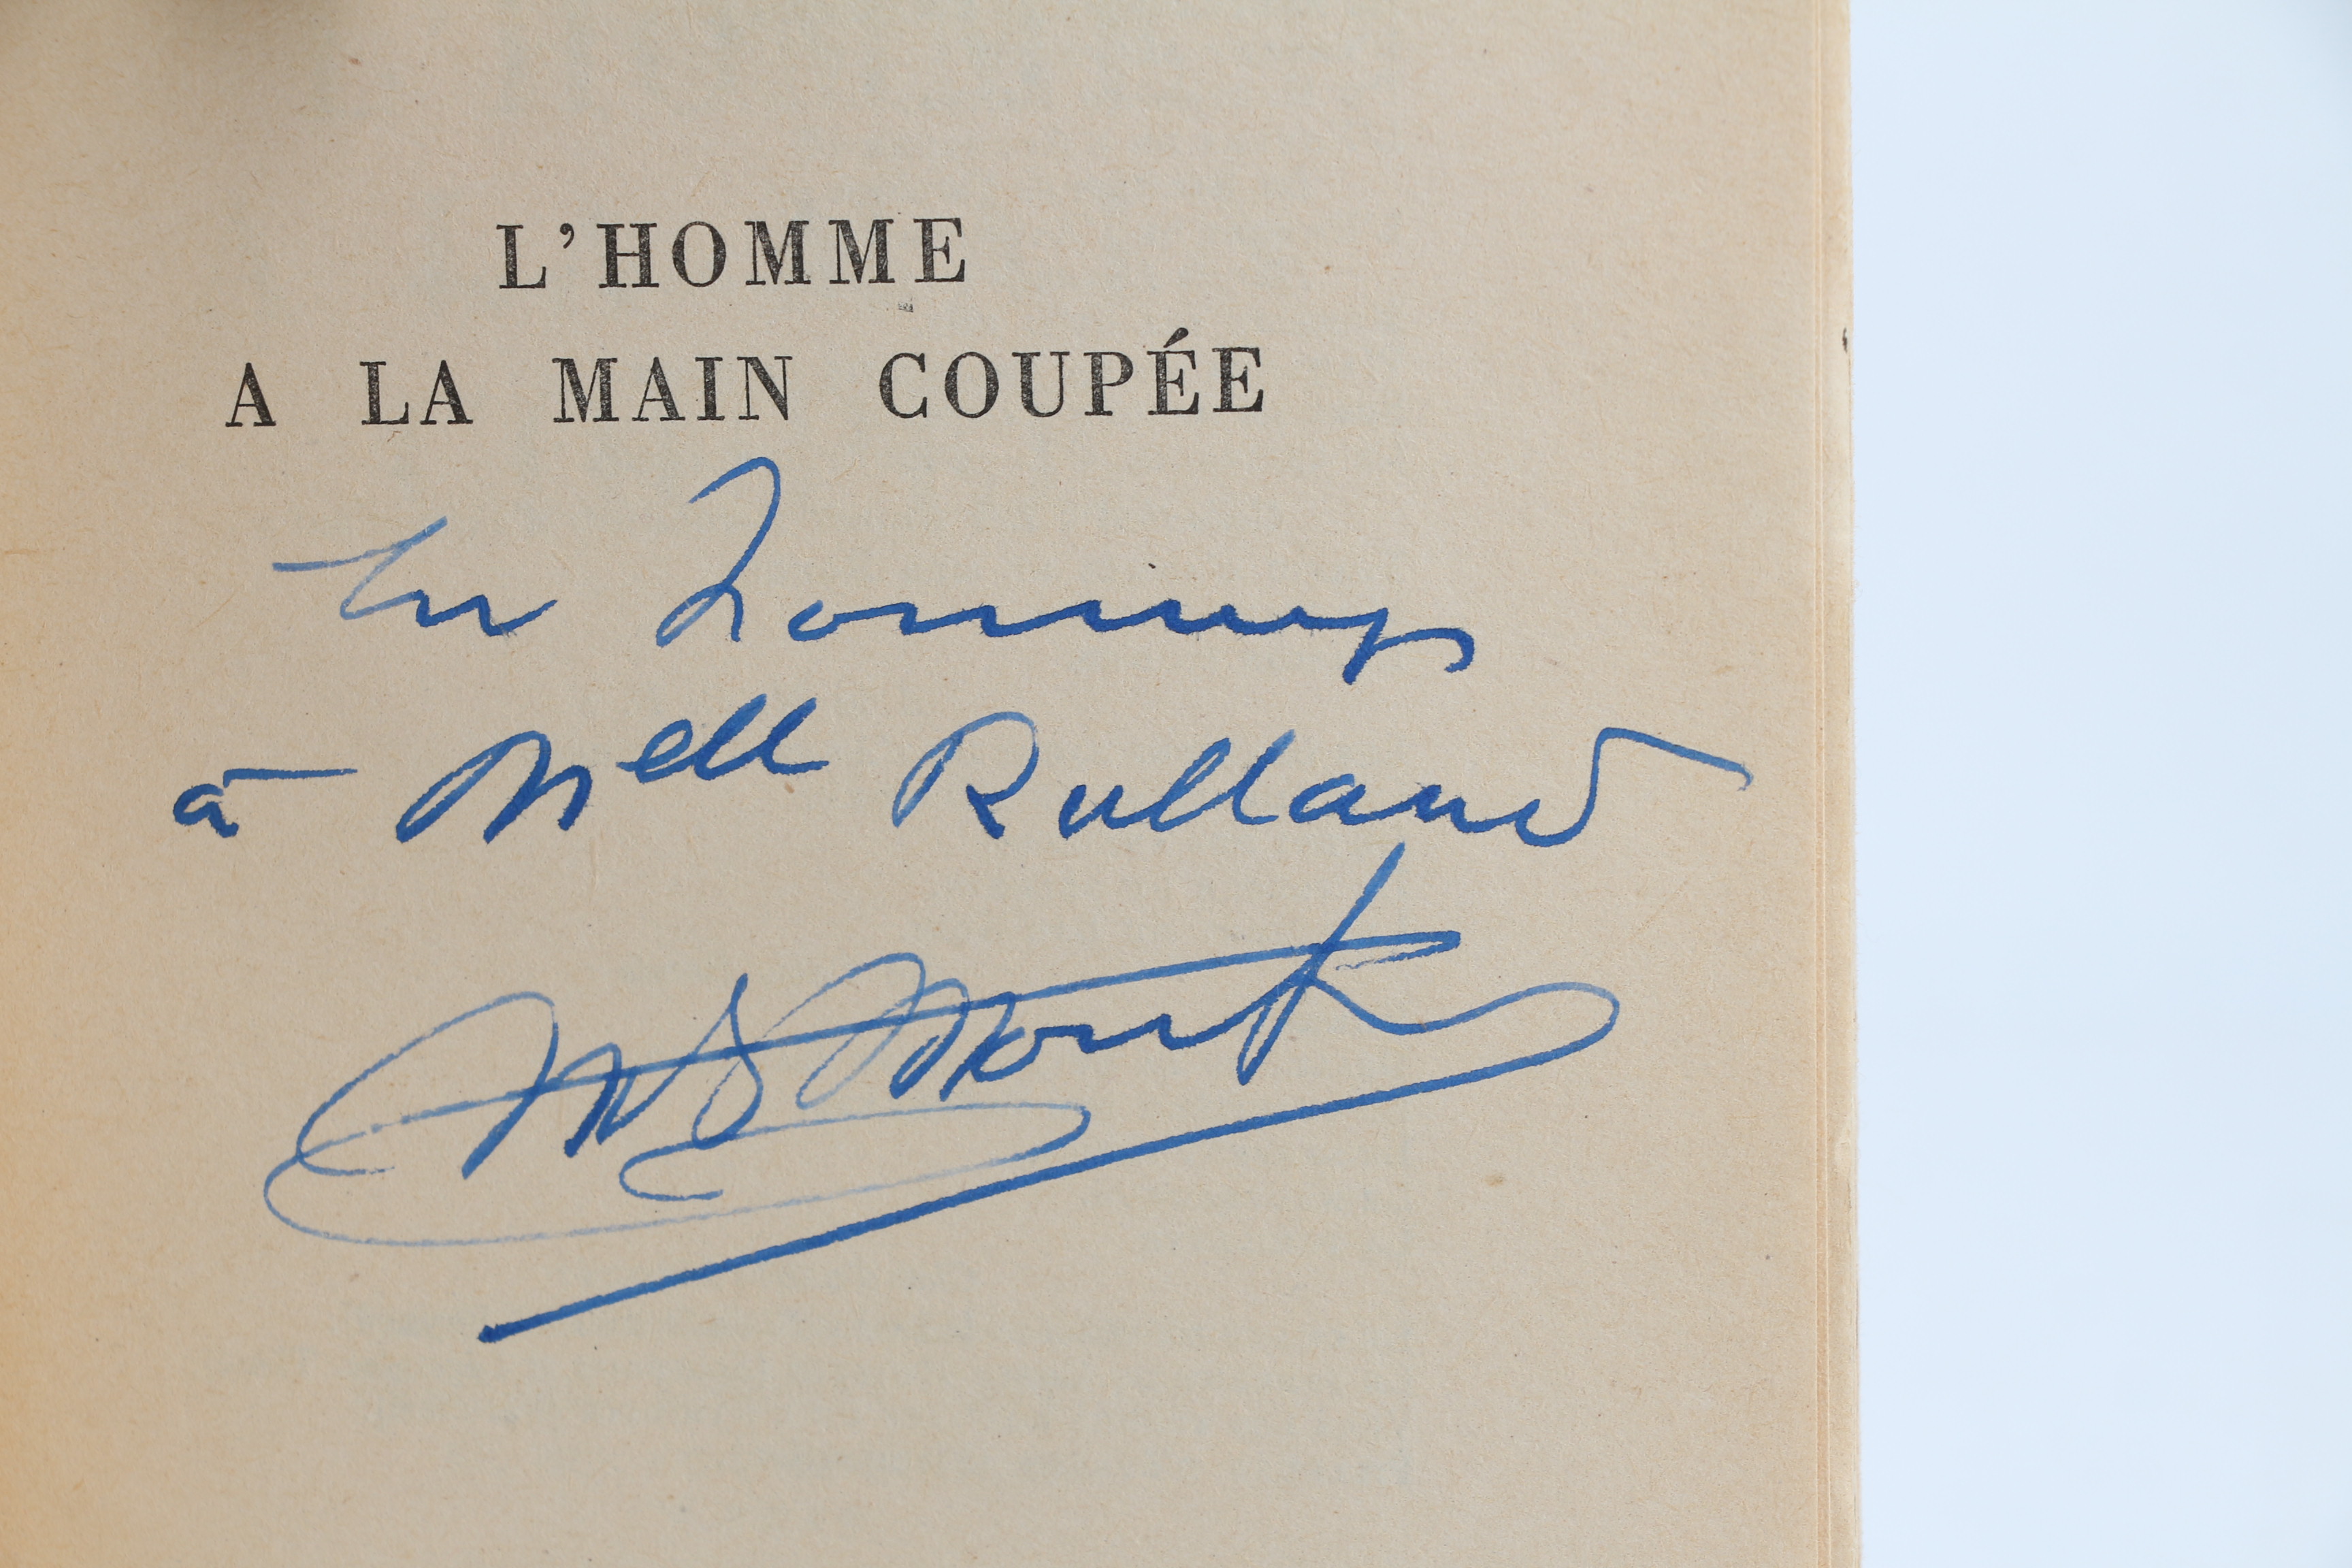 L'HOMME
A LA MAIN COUPÉE
En hommage
à Mell Rulland